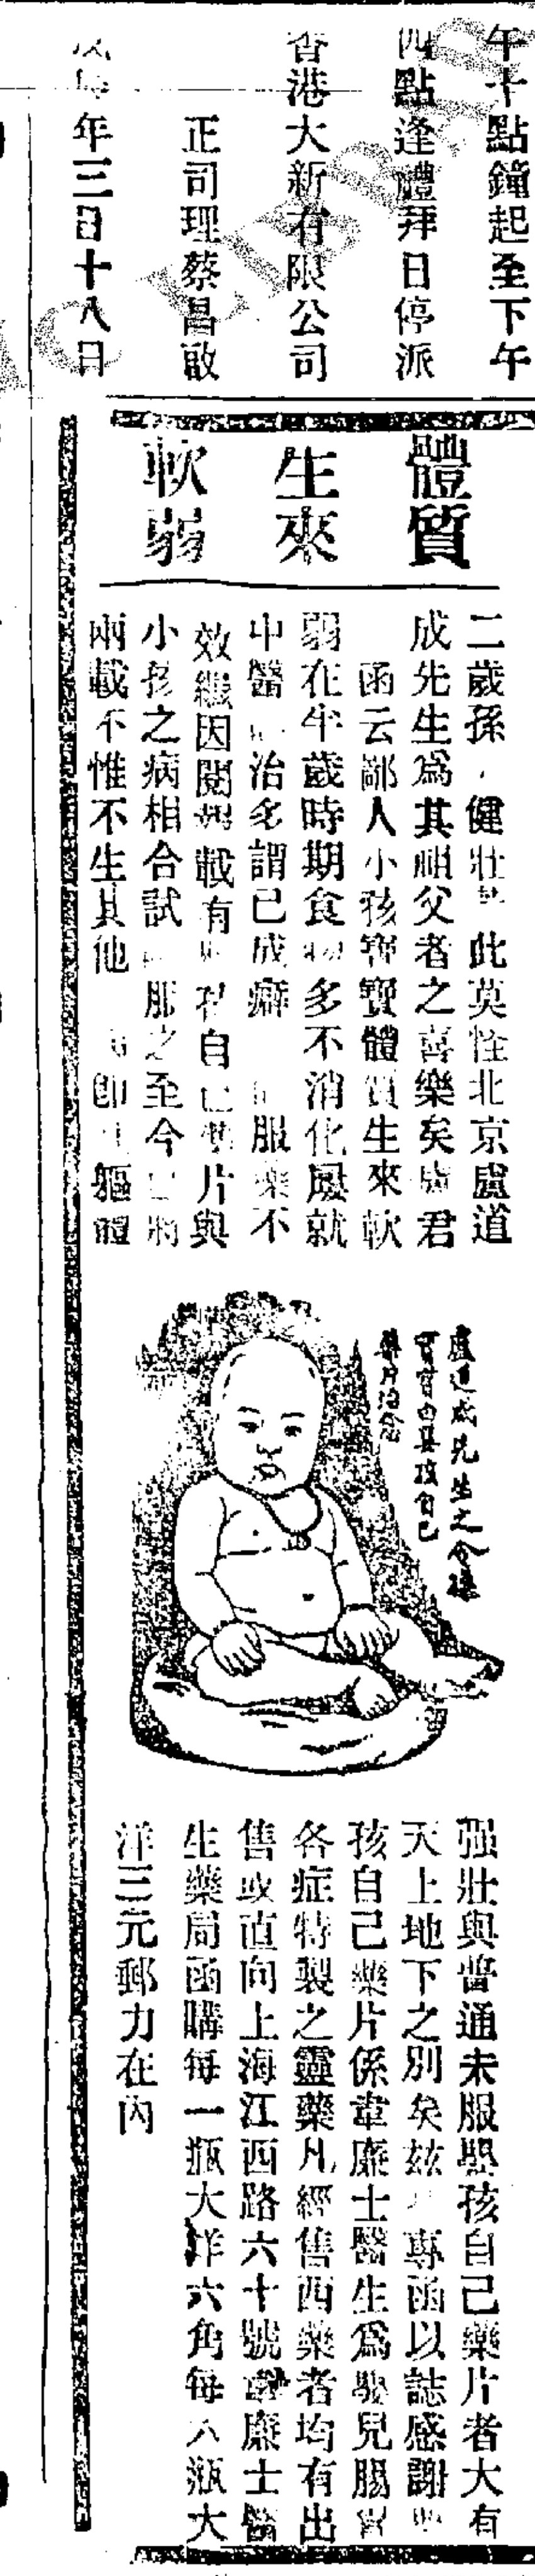 午十點鐘起至下午
四點逢禮拜日停派
香港大新有限公司
正司理蔡昌啟
年三月十八日
體質
生來
軟弱
二歲孫健壯此莫怪北京盧道
成先生爲其祖父者之喜樂矣盧君
函云鄙人小孩寶寶體質生來軟
弱在半歲時期食物多不消化屢就
中醫治多謂已成癖服藥不
效繼因閱報載有嬰孩自己藥片與
小孩之病相合試服之至今已將
兩載不惟不生其他卽軀體
盧道成先生之令孫
寶寶由嬰孩自己
藥片治愈
强壯與普通未服嬰孩自己藥片者大有
天上地下之別矣茲專函以誌感謝嬰
孩自己藥片係韋廉士醫生爲嬰兒腸胃
各症特製之靈藥凡經售西藥者均有出
售或直向上海江西路六十號韋廉士醫
生藥局函購每一瓶大洋六角每六瓶大
洋三元郵力在內